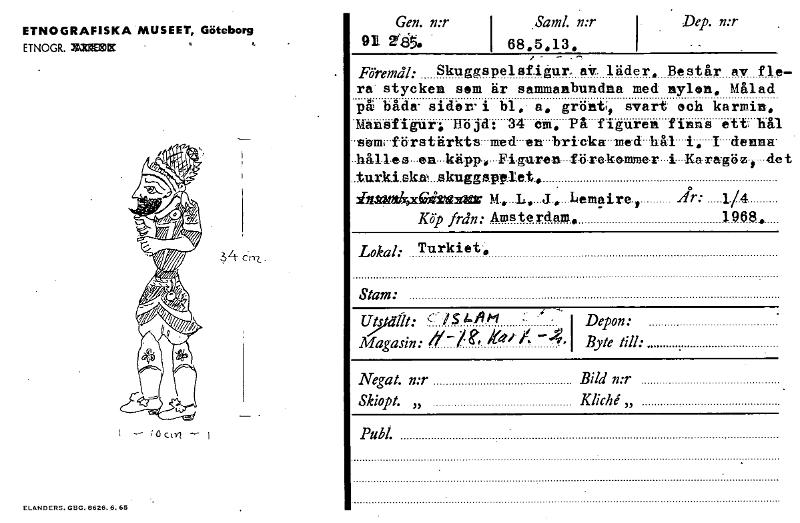 ETNOGRAFISKA MUSEET, Göteborg
ETNOGR.
34 cm.
10 cm
ELANDERS, GBG. 6626. 6. 65
Gen. n:r Saml. n:r Dep. n:r
91 285. 68.5.13.
Föremål: Skuggspelsfigur av läder. Består av fle-
ra stycken som är sammanbundna med nylon. Målad
på båda sidor i bl. a. grönt, svart och karmin.
Mansfigur; Höjd: 34 cm. På figuren finns ett hål
som förstärkts med en bricka med hål i. I denna
hålles en käpp. Figuren förekommer i Karagöz, det
turkiska skuggspelet.
M. L. J. Lemaire, År: 1/4
Köp från: Amsterdam. 1968.
Lokal: Turkiet.
Stam:
Utställt: ISLAM Depon:
Magasin: H-18. Kart.-2. Byte till:
Negat. n:r Bild n:r
Skiopt. „ Kliché „
Publ.